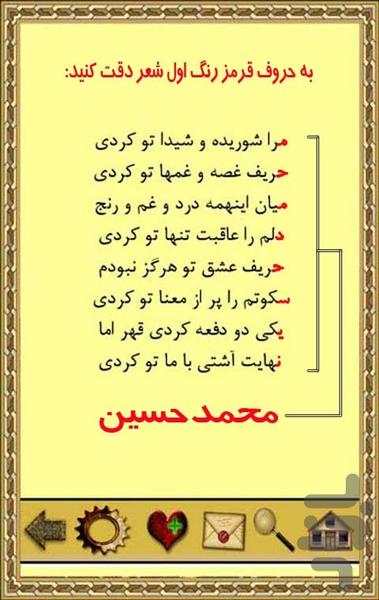 به حروف قرمز رنگ اول شعر دقت کنید:
مرا شوریده و شیدا تو کردی
حریف غصه و غمها تو کردی
میان اینهمه درد و غم و رنج
دلم را عاقبت تنها تو کردی
حریف عشق تو هرگز نبودم
سکوتم را پر از معنا تو کردی
یکی دو دفعه کردی قهر اما
نهایت آشتی با ما تو کردی
محمد حسین
بازار